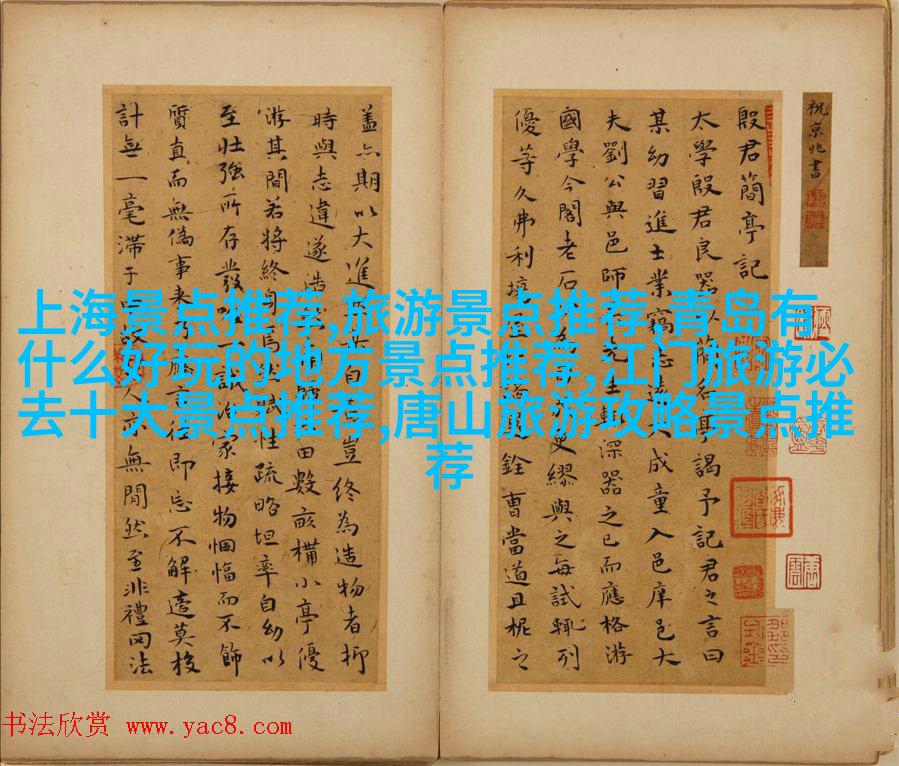 祝京兆書
殷君簡亭記
太學殷君良器以簡名亭謁予記君之言曰
某幼習進士業竊志遠大成童入邑庠邑大
夫劉公與邑師先生深器之已而應格游
國學今閣老石史繆與之每試輒列
優等久弗利場銓曹當道且柅之
蓋亦期以大進自豈終為造物者抑
時與志違遂浩田數畝構小亭優
游其間若將終身焉然賦性疏略坦率自幼以
至壯強所存發唯一誠治家接物悃愊而不飾
質真而無偽事来乃應言往即忘不解莫校
計無一毫滯于故人亦無間然至非禮罔法
上海景点推荐,旅游景点推荐,青岛有
什么好玩的地方景点推荐,江门旅游必
去十大景点推荐,唐山旅游攻略景点推
荐
书法欣赏 www.yac8.com